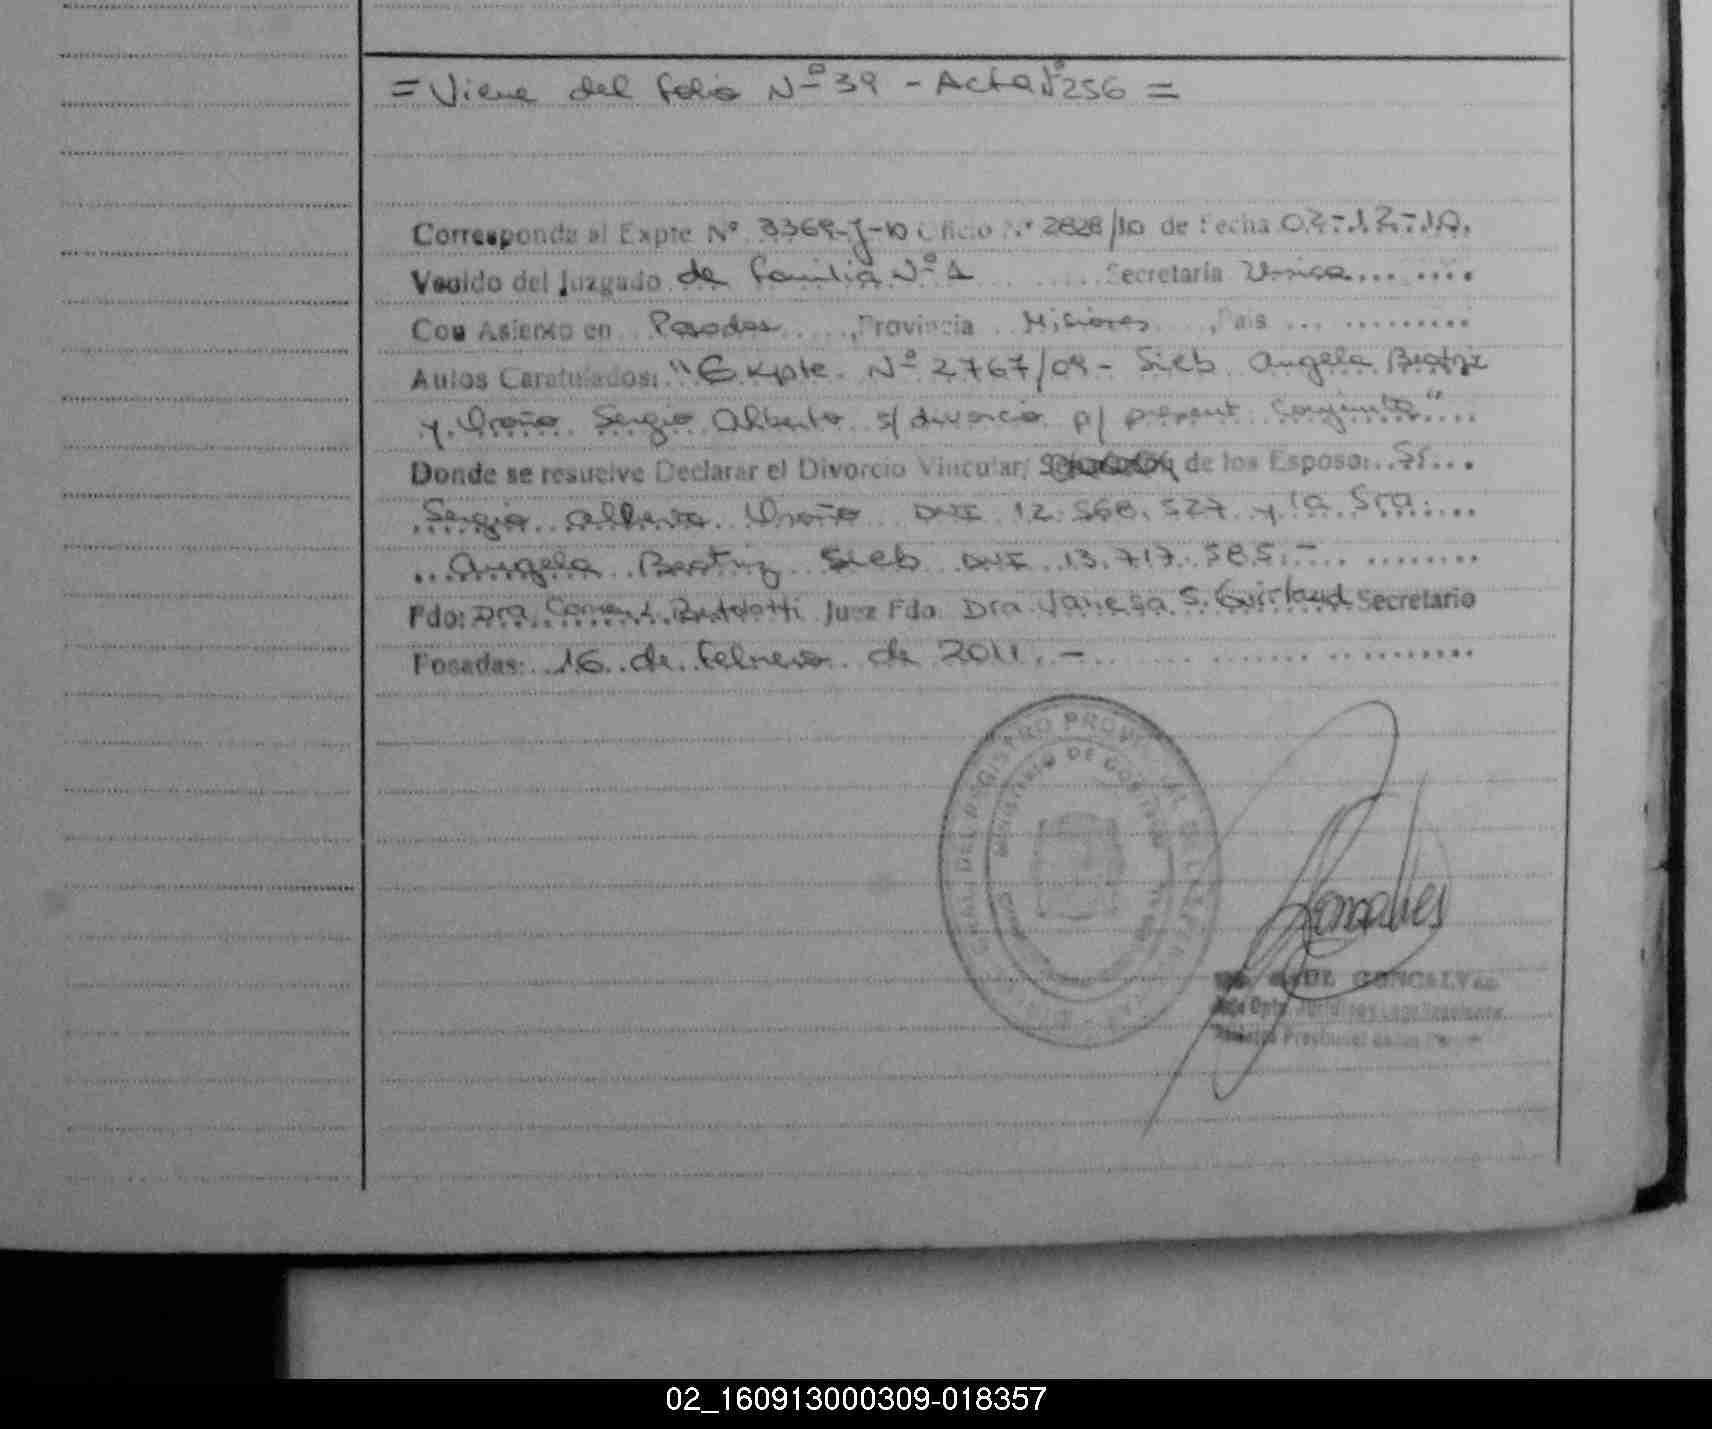 = Viene del folio Nº 39 - Acta Nº 256 =
Corresponde al Expte Nº 3369-J-10 Oficio Nº 2828/10 de Fecha 02-12-10.
Venido del Juzgado de Familia Nº 1 Secretaría Unica
Con Asiento en Posadas, Provincia Misiones, País
Autos Caratulados: "Expte. Nº 2767/09 - Sieb Angela Beatriz
y Sergio Alberto s/ divorcio p/ present. conjunta"
Donde se resuelve Declarar el Divorcio Vincular/ de los Esposo: Sr.
Sergio Alberto DNI 12.568.527 y la Sra.
Angela Beatriz Sieb DNI 13.717.585.-
Fdo: Dra. Juez Fdo. Dra. Vanesa S. Guirland Secretario
Posadas: 16 de febrero de 2011.-
DEL REGISTRO PROVINCIAL DE LAS PERSONAS
MINISTERIO DE GOBIERNO
Goncalves
RAUL GONCALVES
Jefe Dpto. Jurídico y Legalizaciones
Registro Provincial de las Personas
02_160913000309-018357